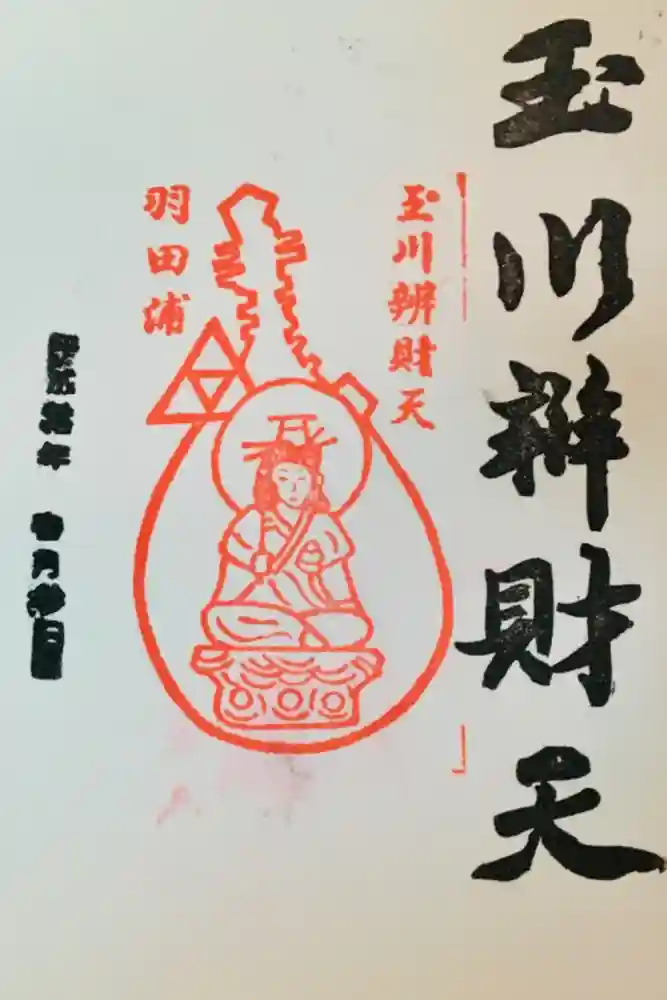 玉川辨財天
玉川辨財天
羽田浦